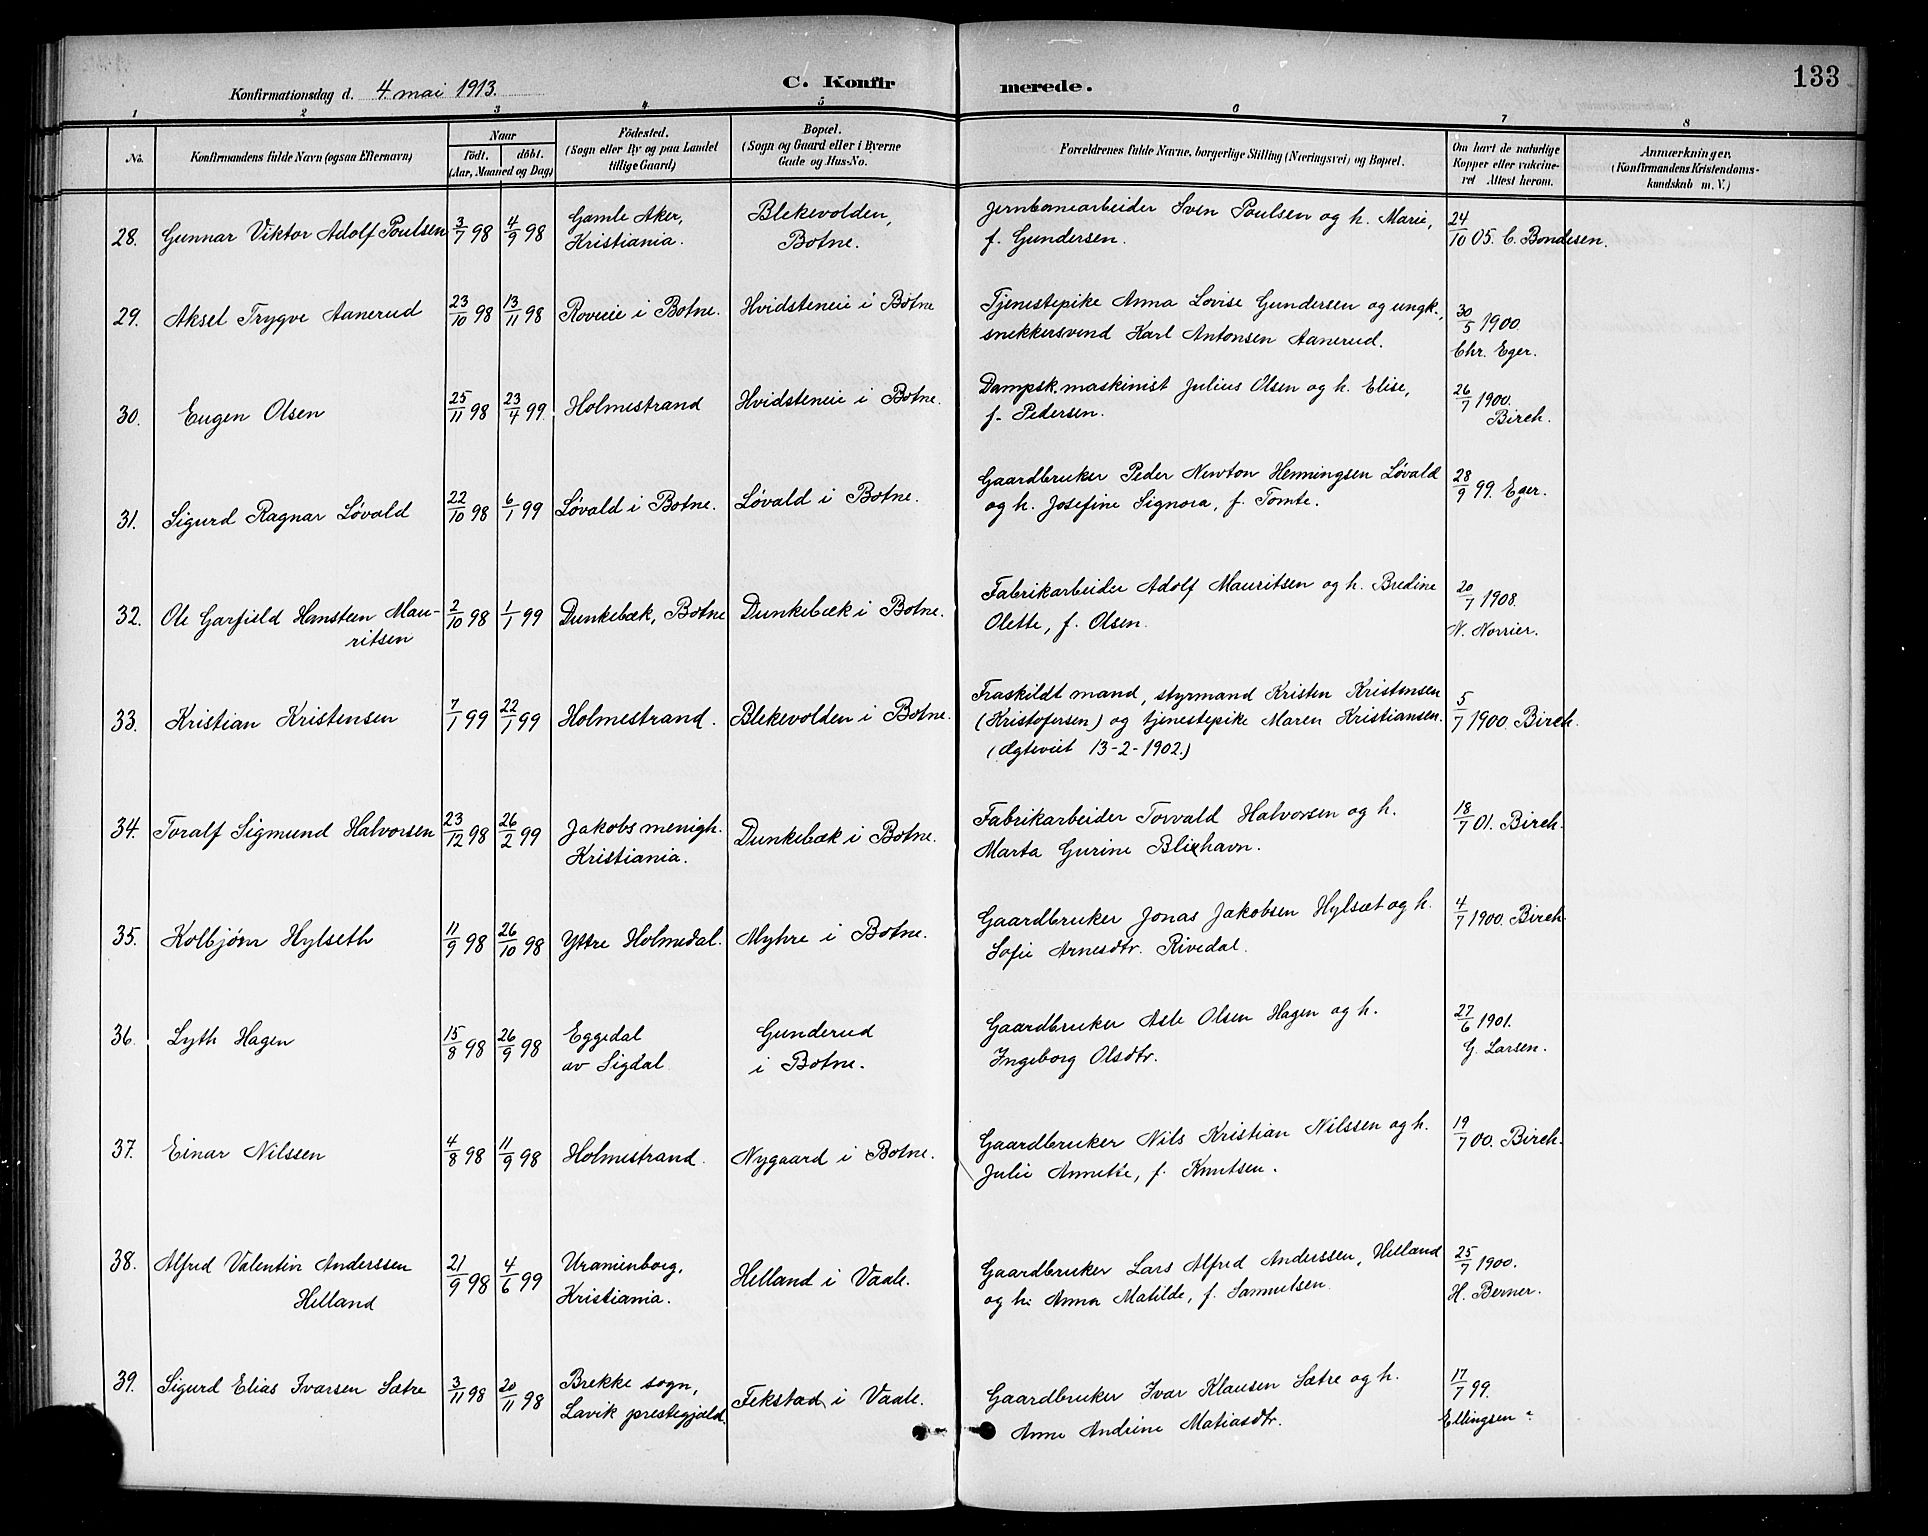 133
Konfirmationsdag d. 4 mai 1913.
C. Konfirmerede.
1 2 3 4 5 6 7 8
No.
Konfirmandens fulde Navn (ogsaa Efternavn)
Naar
födt. döbt.
(Aar, Maaned og Dag)
Födested.
(Sogn eller By og paa Landet
tillige Gaard)
Bopæl.
(Sogn og Gaard eller i Byerne
Gade og Hus-No.
Forældrenes fulde Navne, borgerlige Stilling (Næringsvei) og Bopæl.
Om havt de naturlige
Kopper eller vakcine-
ret Attest herom.
Anmærkninger.
(Konfirmandens Kristendoms-
kundskab m. V.)
28. Gunnar Viktor Adolf Poulsen 3/7 98 4/9 98
Gamle Aker,
Kristiania.
Blekevolden,
Botne.
Jernbanearbeider Sven Poulsen og h. Marie,
f. Gundersen.
24/10 05. C. Bondesen.
29. Aksel Trygve Aanerud 23/10 98 13/11 98 Roveie i Botne. Hvidsteneie i Botne
Tjenestepike Anna Lovise Gundersen og ungk.,
snekkersvend Karl Antonsen Aanerud.
30/5 1900.
Chr. Eger.
30. Eugen Olsen 25/11 98 23/4 99. Holmestrand Hvidsteneie i Botne.
Dampsk. maskinist Julius Olsen og h. Elise,
f. Pedersen.
26/7 1900.
Birch.
31. Sigurd Ragnar Løvald 22/10 98 6/1 99 Løvald i Botne. Løvald i Botne.
Gaardbruker Peder Newton Henningsen Løvald
og h. Josefine Signora, f. Tomte.
28/9 99. Eger.
32. Ole Garfield Hansteen Mau-
ritsen
2/10 98 1/1 99 Dunkebæk, Botne Dunkebæk i Botne.
Fabrikarbeider Adolf Mauritsen og h. Bredine
Olette, f. Olsen.
20/7 1908.
N. Norrier.
33. Kristian Kristensen 7/1 99 22/1 99 Holmestrand. Blekevolden i Botne.
Fraskildt mand, styrmand Kristen Kristensen
(Kristofersen) og tjenestepike Maren Kristiansen.
(Ægteviet 13-2-1902.)
5/7 1900. Birch.
34. Toralf Sigmund Halvorsen 23/12 98 26/2 99
Jakobs menigh.
Kristiania.
Dunkebæk i Botne.
Fabrikarbeider Torvald Halvorsen og h.
Marta Gurine Blixhavn.
18/7 01. Birch.
35. Kolbjørn Hylseth 11/9 98 26/10 98 Yttre Holmedal. Myhre i Botne.
Gaardbruker Jonas Jakobsen Hylsæt og h.
Sofie Arnesdtr. Rivedal.
4/7 1900. Birch
36. Lyth Hagen 15/8 98 26/9 98
Eggedal
av Sigdal
Gunderud
i Botne.
Gaardbruker Asle Olsen Hagen og h.
Ingeborg Olsdtr.
27/6 1901.
G. Larsen.
37. Einar Nilssen 4/8 98 11/9 98 Holmestrand. Nygaard i Botne.
Gaardbruker Nils Kristian Nilssen og h.
Julie Annette, f. Knutsen.
19/7 00. Birch.
38. Alfred Valentin Anderssen
Helland
21/9 98 4/6 99
Uranienborg,
Kristiania.
Helland i Vaale.
Gaardbruker Lars Alfred Anderssen, Helland
og h. Anna Matilde, f. Samuelsen.
25/7 1900.
H. Berner.
39. Sigurd Elias Ivarsen Sætre 3/11 98 20/11 98
Brekke sogn,
Lavik prestegjæld.
Fekstad i Vaale.
Gaardbruker Ivar Klausen Sætre og h.
Anne Andrine Matiasdtr.
17/7 99.
Ellingsen